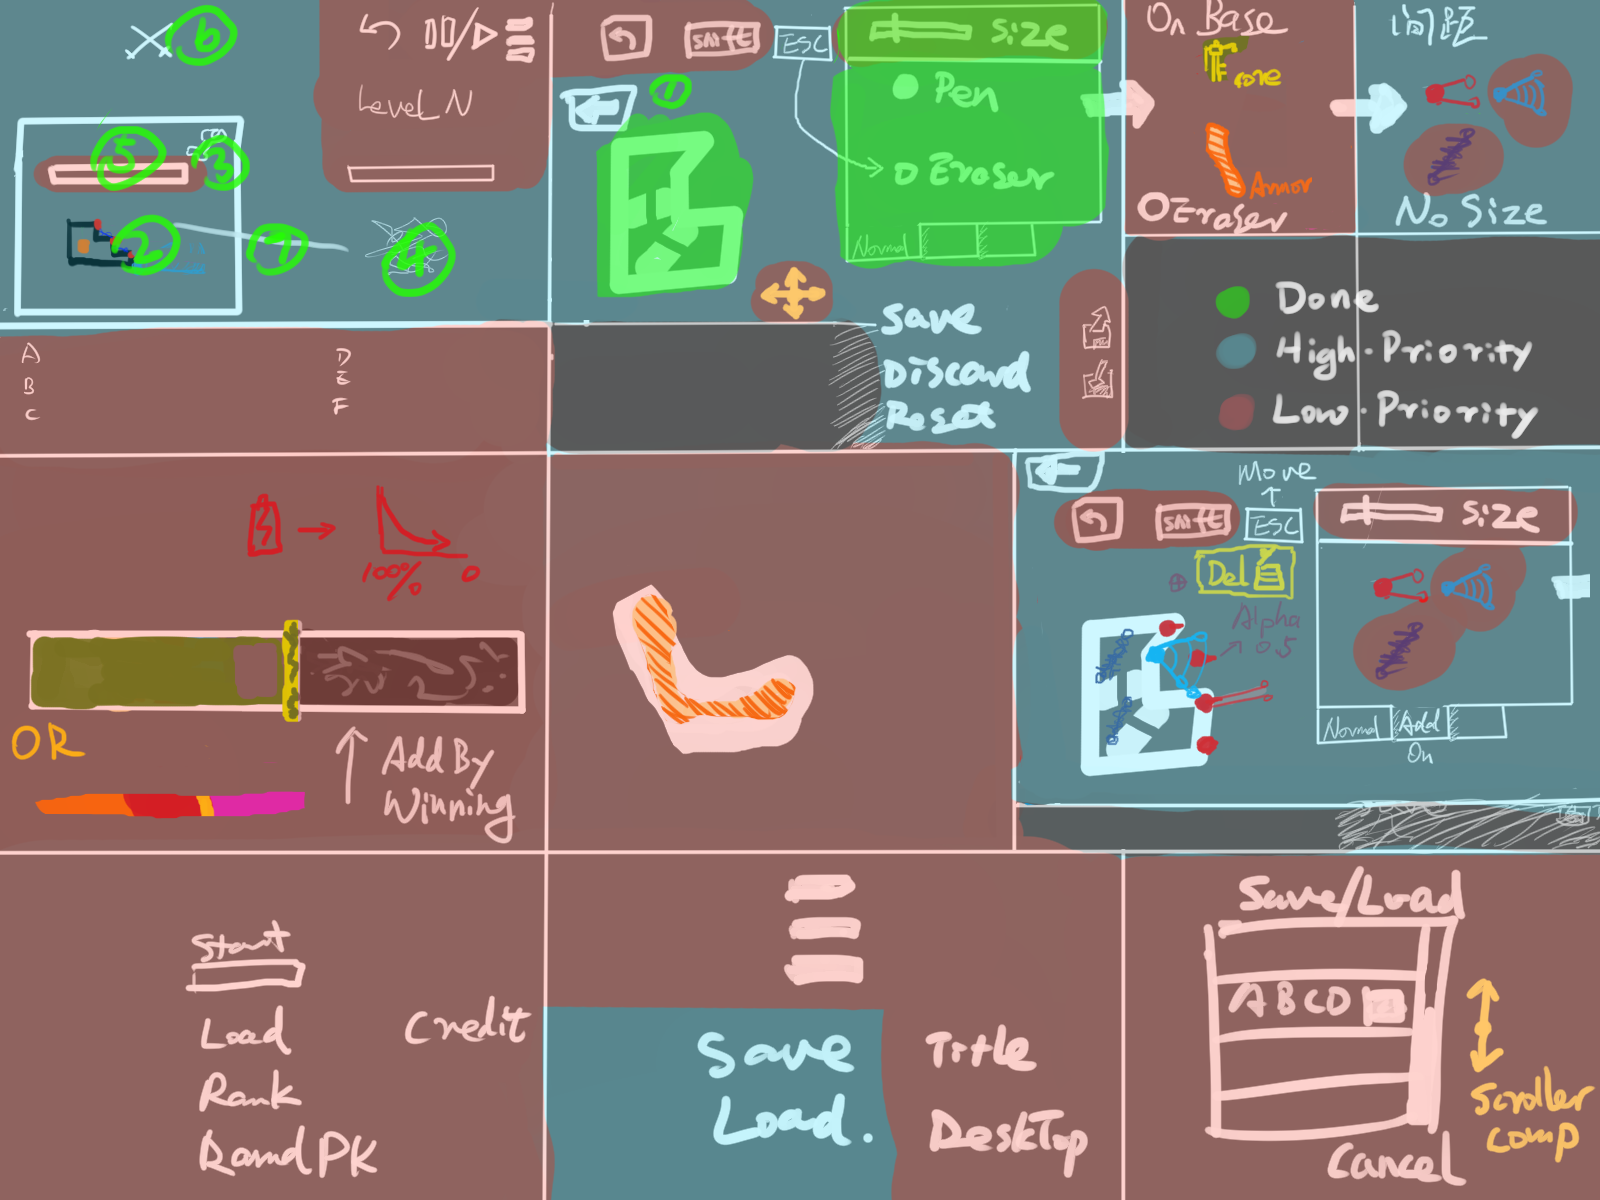 6
5
3
2
1
4
Level_N
A
B
C
D
E
F
shift
ESC
Size
1
Pen
Eraser
Normal
Save
Discard
Reset
On Base
Core
Armor
Eraser
间距
No Size
Done
High-Priority
Low-Priority
100%
0
OR
Add By
Winning
Move
shift
ESC
Size
Del
Alpha
0.5
Normal
Add
On
Start
Load
Rank
Rand PK
Credit
Save
Load.
Title
DeskTop
Save/Load
ABCD
Scroller
comp
Cancel